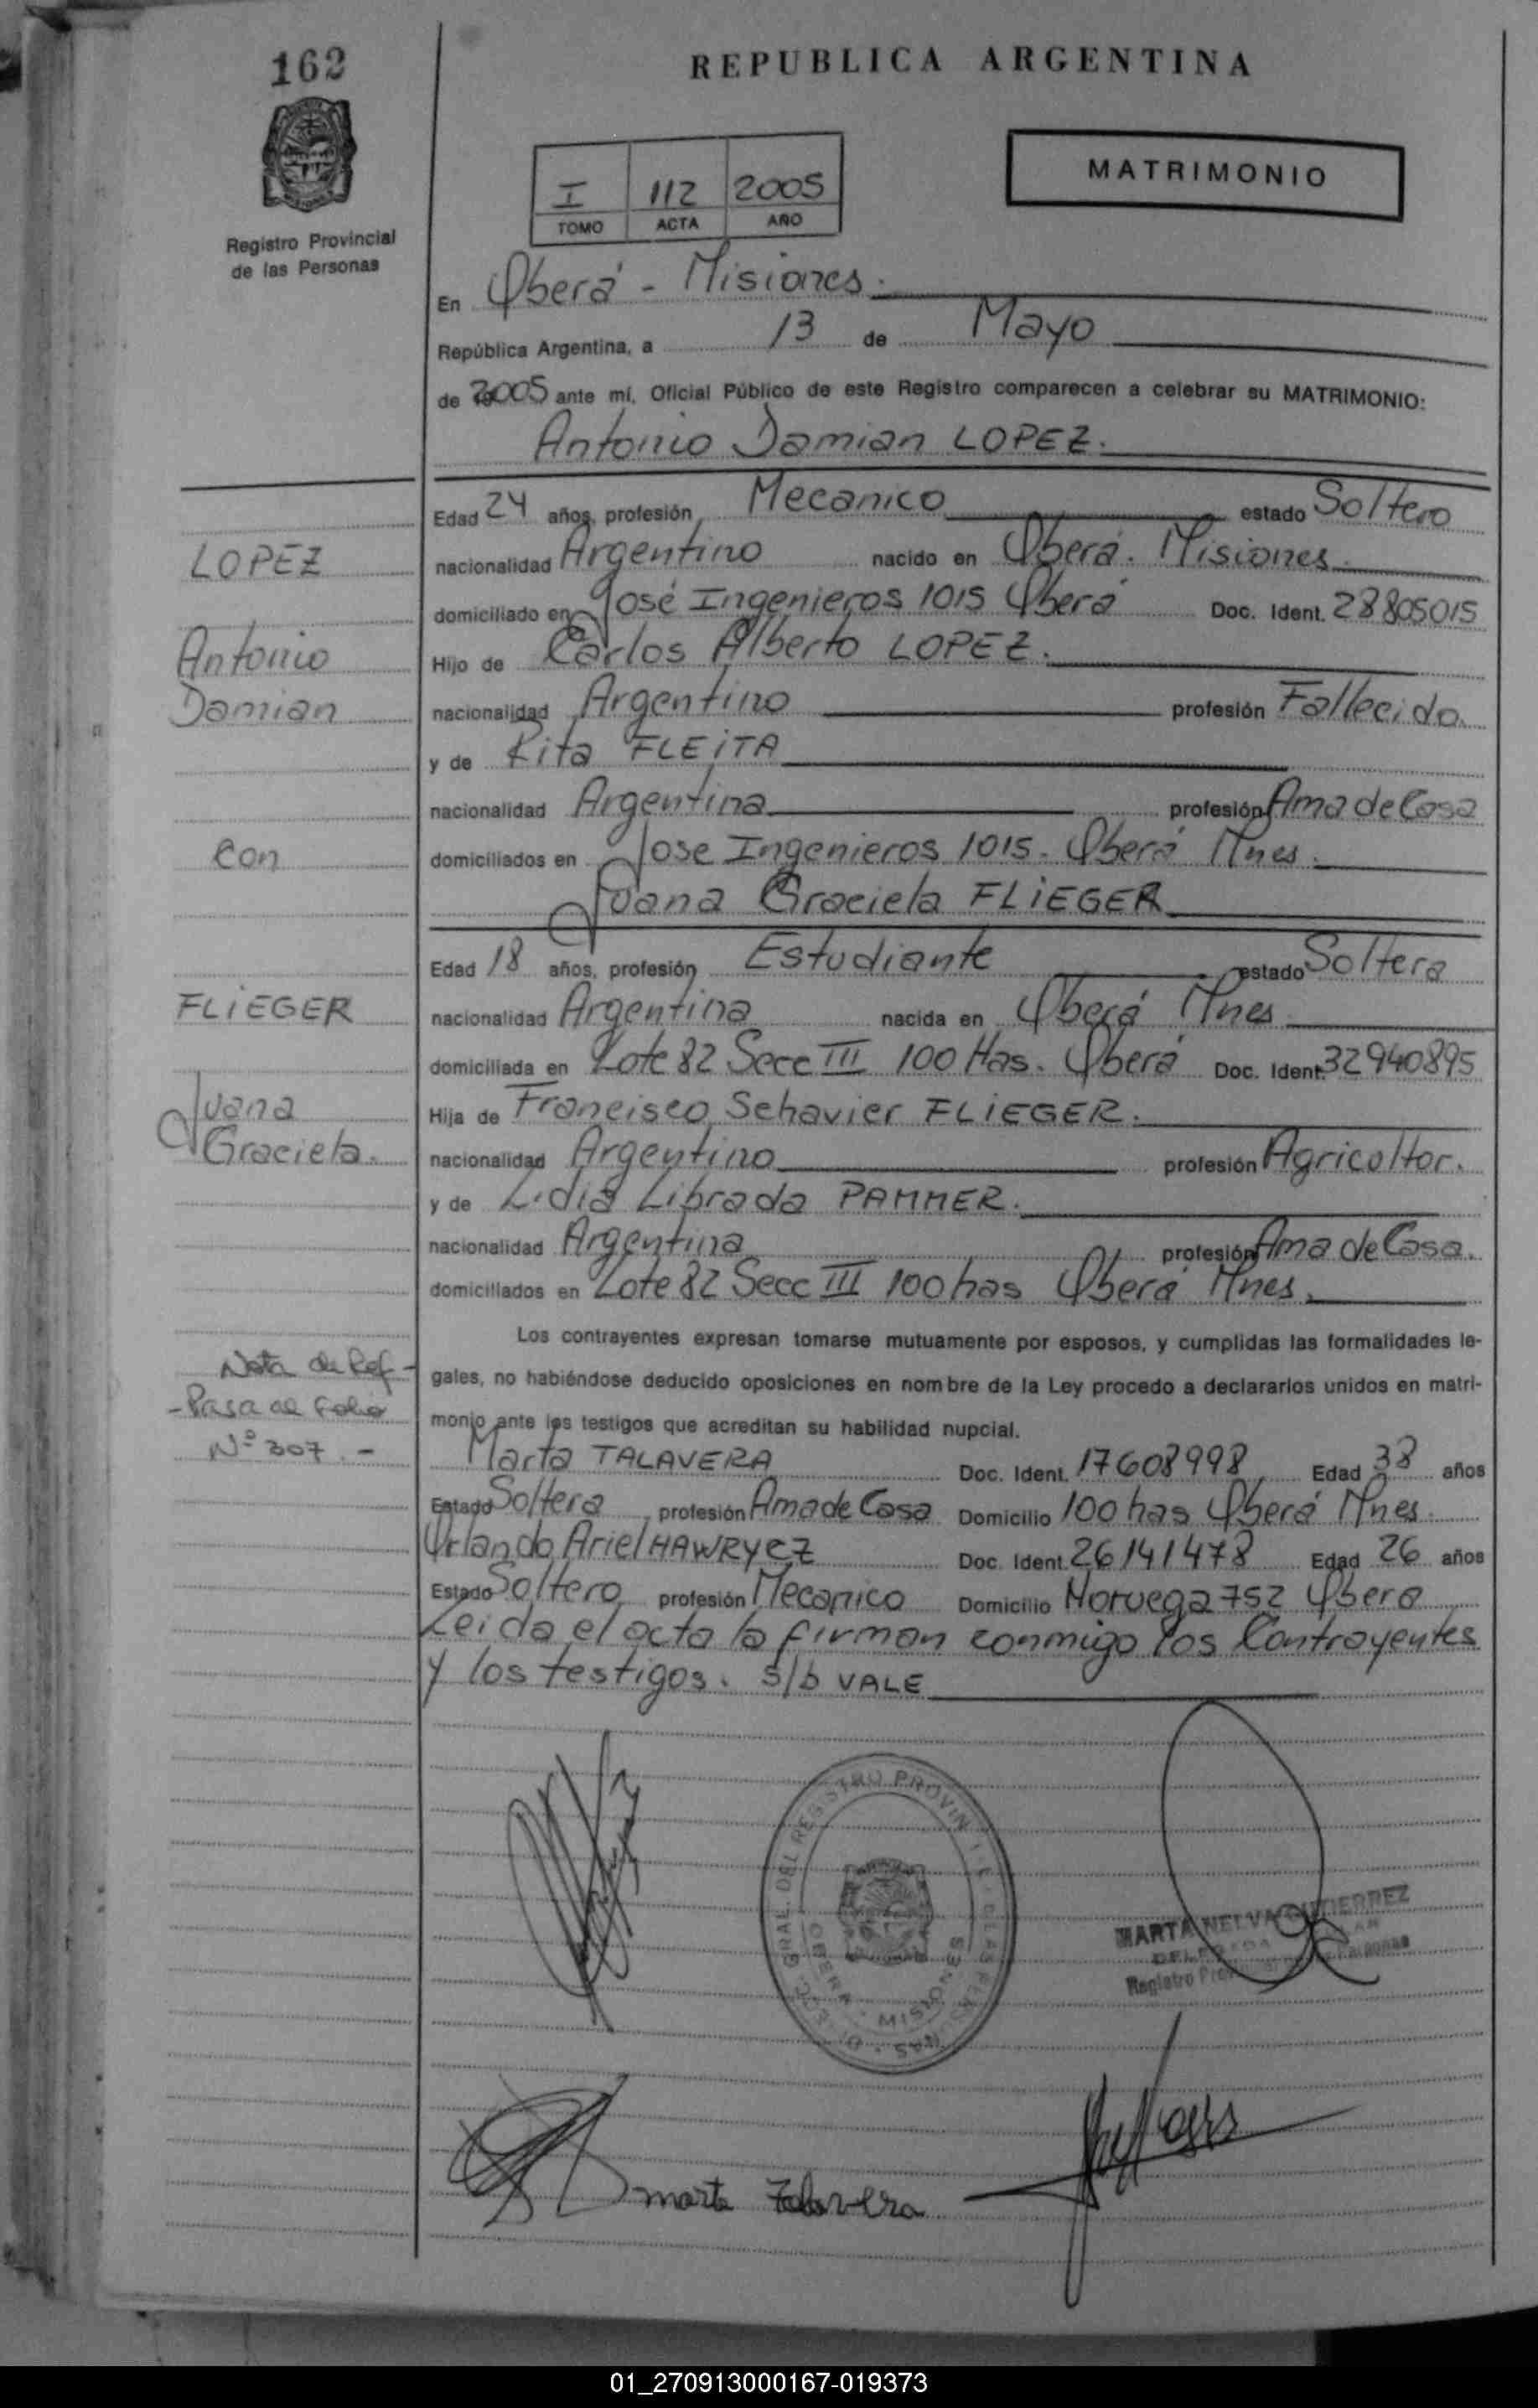 162
REPUBLICA ARGENTINA
Registro Provincial
de las Personas
I 112 2005
TOMO ACTA AÑO
MATRIMONIO
En Oberá - Misiones.
República Argentina, a 13 de Mayo
de 2005 ante mí, Oficial Público de este Registro comparecen a celebrar su MATRIMONIO:
Antonio Damian LOPEZ.
Edad 24 años, profesión Mecanico estado Soltero
LOPEZ
nacionalidad Argentino nacido en Oberá. Misiones
domiciliado en José Ingenieros 1015 Oberá Doc. Ident. 28805015
Antonio
Hijo de Carlos Alberto LOPEZ.
Damian
nacionalidad Argentino profesión Fallecido.
y de Rita FLEiTA
nacionalidad Argentina profesión Ama de Casa
con
domiciliados en Jose Ingenieros 1015. Oberá Mnes.
Juana Graciela FLiEGER
Edad 18 años, profesión Estudiante estado Soltera
FLiEGER
nacionalidad Argentina nacida en Oberá Mnes
domiciliada en Lote 82 Secc III 100 Has. Oberá Doc. Ident. 32940895
Juana
Hija de Francisco Schavier FLiEGER.
Graciela.
nacionalidad Argentino profesión Agricultor.
y de Lidia Librada PAMMER.
nacionalidad Argentina profesión Ama de Casa.
domiciliados en Lote 82 Secc III 100 has Oberá Mnes.
Los contrayentes expresan tomarse mutuamente por esposos, y cumplidas las formalidades le-
gales, no habiéndose deducido oposiciones en nombre de la Ley procedo a declararlos unidos en matri-
monio ante los testigos que acreditan su habilidad nupcial.
Nota de Ref-
-Pasa al Folio
Nº 307.-
Marta TALAVERA Doc. Ident. 17608998 Edad 38 años
Estado Soltera profesión Ama de Casa Domicilio 100 has Oberá Mnes.
Orlando Ariel HAWRYCZ Doc. Ident. 26141478 Edad 26 años
Estado Soltero profesión Mecanico Domicilio Noruega 752 Obera
Leida el acta la firman conmigo los Contrayentes
y los testigos. s/b VALE
GRAL. DEL REGISTRO PROVINCIAL
OBERA - MISIONES
MARTA NELVA GUTIERREZ
Registro
marta Talavera
01_270913000167-019373